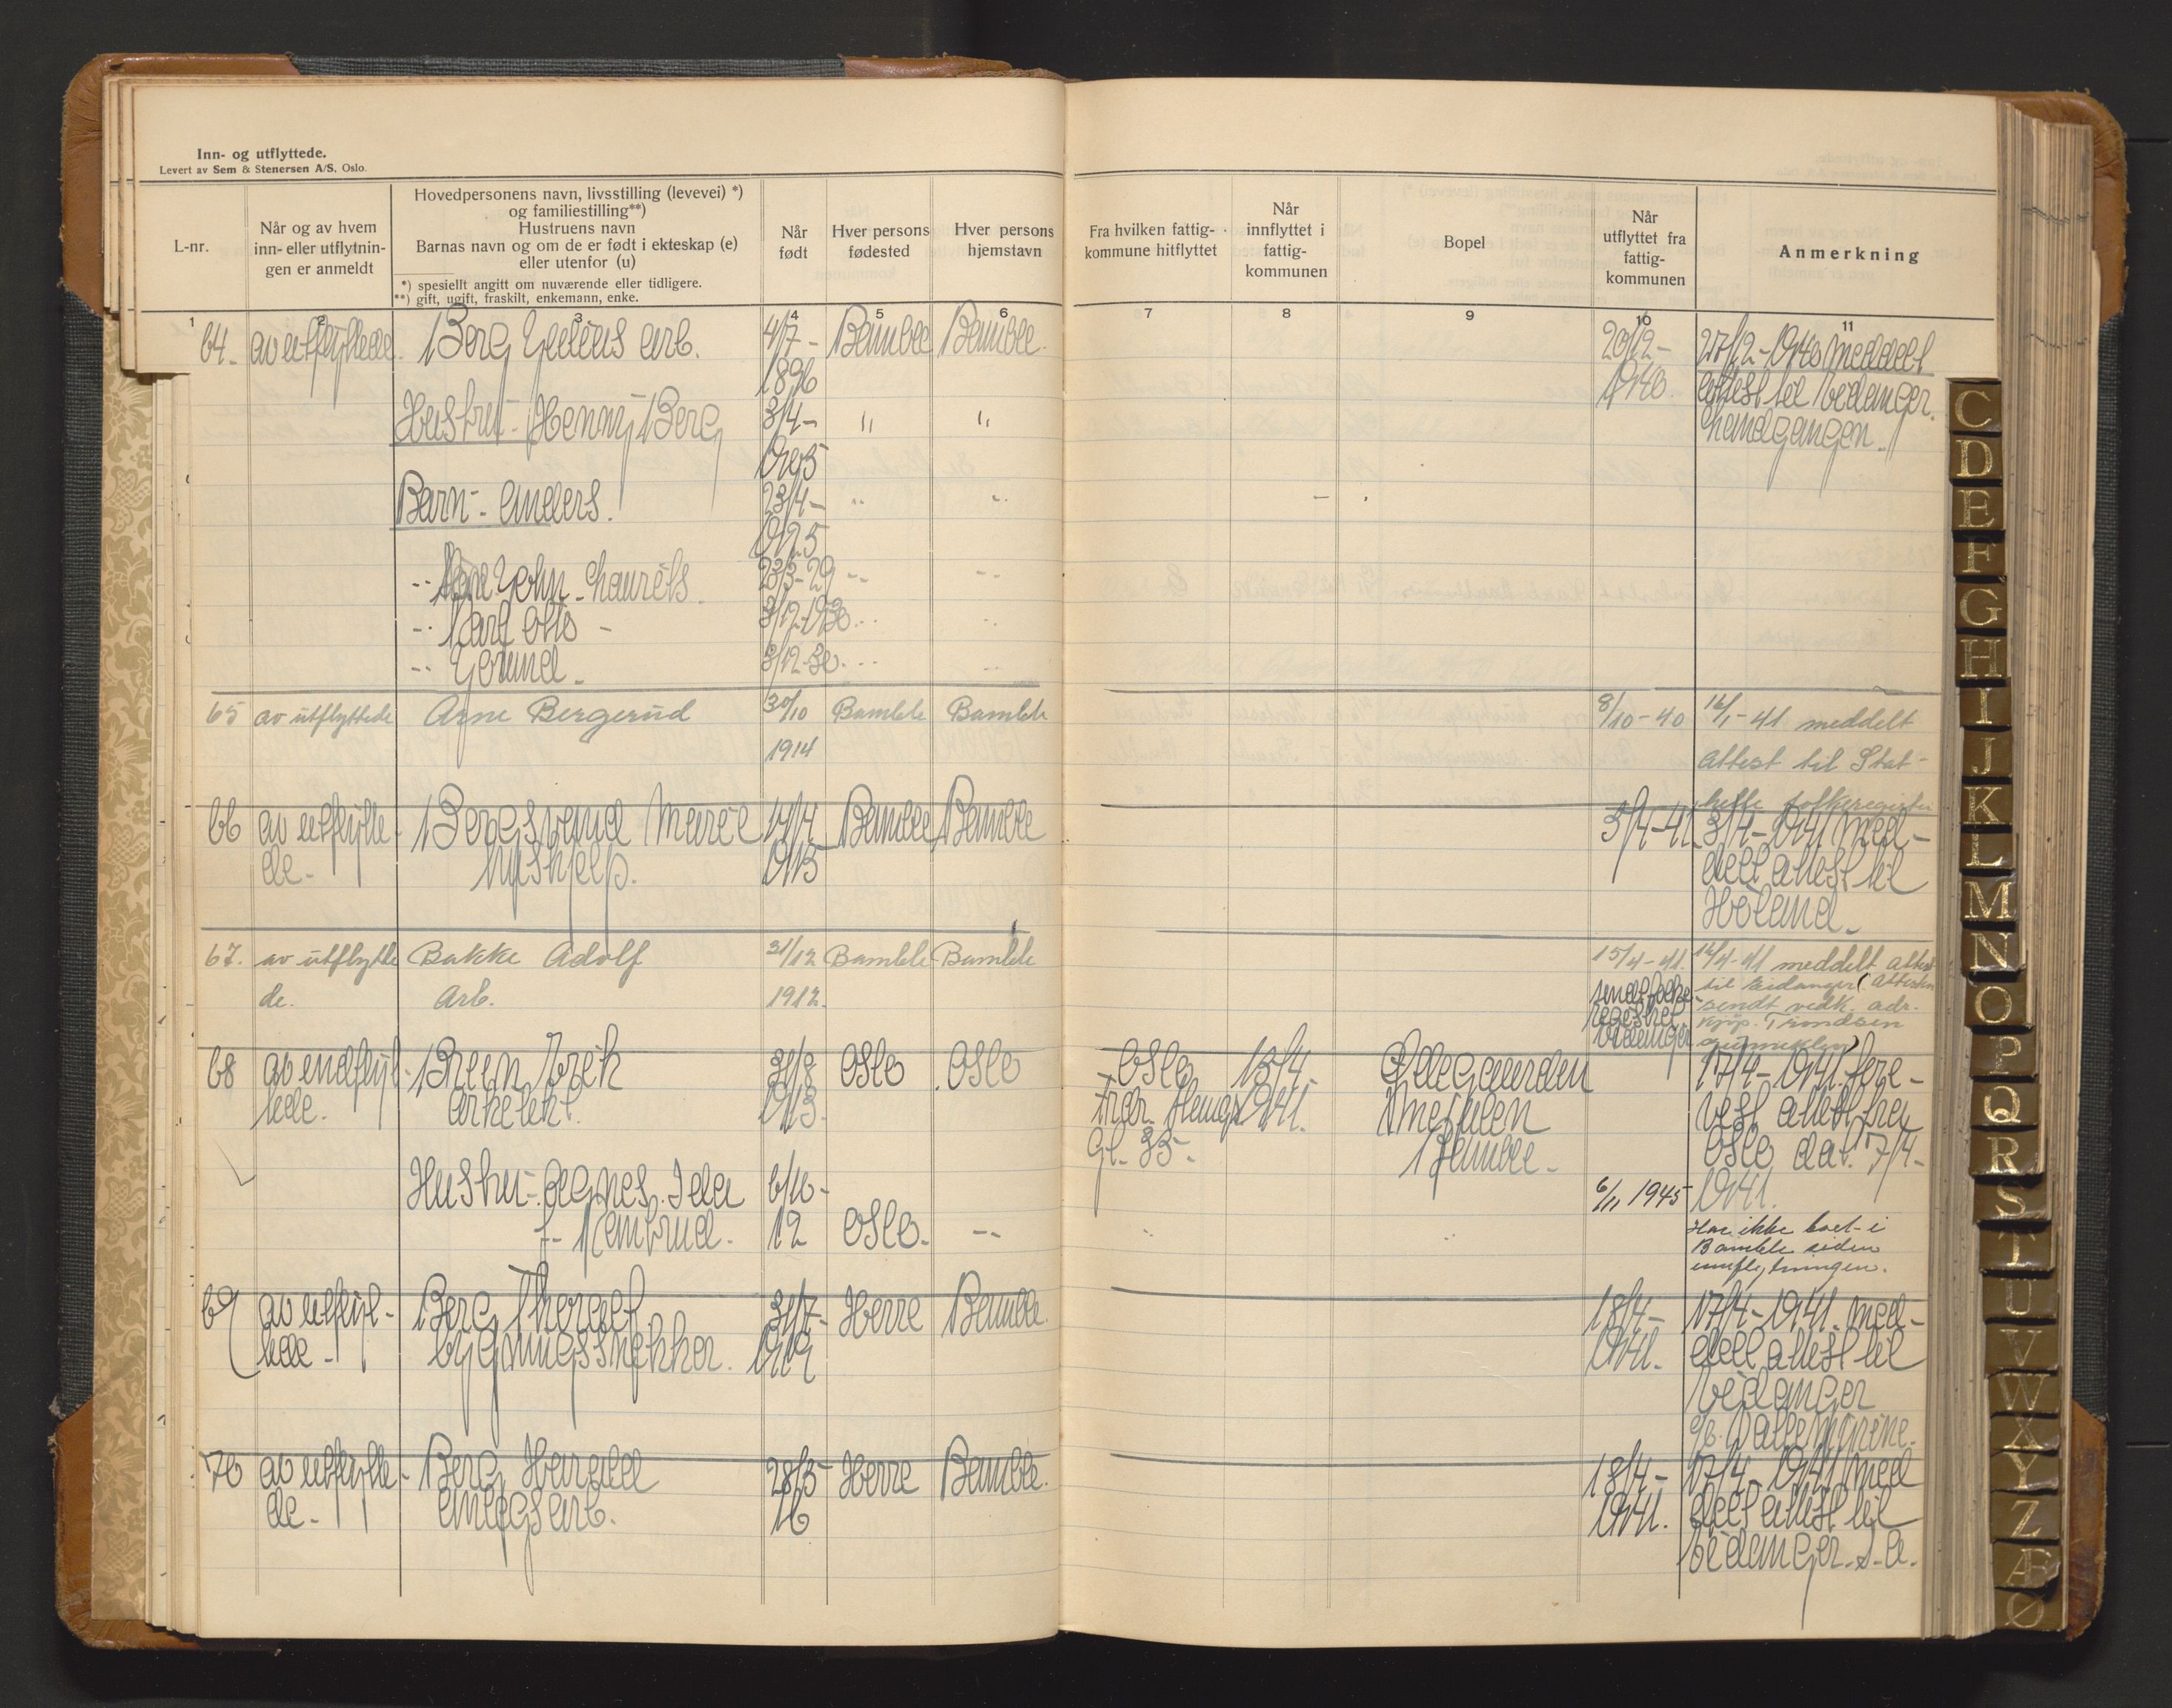 Inn- og utflyttede.
Levert av Sem & Stenersen A/S. Oslo.
L-nr.
Når og av hvem
inn- eller utflytnin-
gen er anmeldt
Hovedpersonens navn, livsstilling (levevei) *)
og familiestilling**)
Hustruens navn
Barnas navn og om de er født i ekteskap (e)
eller utenfor (u)
*) spesiellt angitt om nuværende eller tidligere.
**) gift, ugift, fraskilt, enkemann, enke.
Når
født
Hver persons
fødested
Hver persons
hjemstavn
Fra hvilken fattig-
kommune hitflyttet
Når
innflyttet i
fattig-
kommunen
Bopel
Når
utflyttet fra
fattig-
kommunen
Anmerkning
1 2 3 4 5 6 7 8 9 10 11
64. av utflyttede. Berg Julius arb. 4/7- Bamble Bamble. 20/12- 27/12-1940 meddelt
1896 1940. attest til Eidanger.
Hustru- Henny Berg 3/4- " "
1905
Barn- Anders. 23/4-
1925
John-Laurits. 23/3-29
Karl Otto - 3/12-1930
Jorund. 3/12-30
65 av utflyttede Arne Bergerud 30/10 Bamble Bamble 8/10-40 16/1-41 meddelt
1914 Attest til Stat-
helle folkeregister
66 av utflytte- Bergsvend Marie 14/4 Bamble Bamble 3/4-41. 3/4-1941 med-
de- hushjelp. 1915 delt attest til
Höland.
67. av utflytte Bakke Adolf 31/12 Bamble Bamble 15/4-41. 16/4-41 meddelt attest
de. Arb. 1912. til Eidanger (Attesten
sendt folke- sendt vedk. adr.
registret Kjøp. Trondsen
Eidanger
68 av indflyt- Breen Erik 31/8 Oslo Oslo Oslo 13/4 Ödegaarden 17/4-1941 fore-
tede. Arkitekt. 1913. 1941. Bamble- vist attest fra
Gt. 35- Oslo dat. 7/4-
Hustru- Agnes. Ida 6/10- 6/11 1945 1941.
f- 12 Oslo. -"- Har ikke boet i
Bamble siden
innflytningen.
69 av utflyt- Berg Thoralf 31/7- Herre Bamble. 18/4- 17/4-1941. med-
tede - bygningssnekker. 1919 1941. delt attest til
Eidanger
70 av utflytte- Berg Harald 28/3- Herre Bamble. 18/4- 17/4-1941 med
de- anlegsarb. 16 1941. delt attest til
Eidanger. s.a.
C
D
E
F
G
H
I
J
K
L
M
N
O
P
Q
R
S
T
U
V
W
X
Y
Z
Æ
Ø